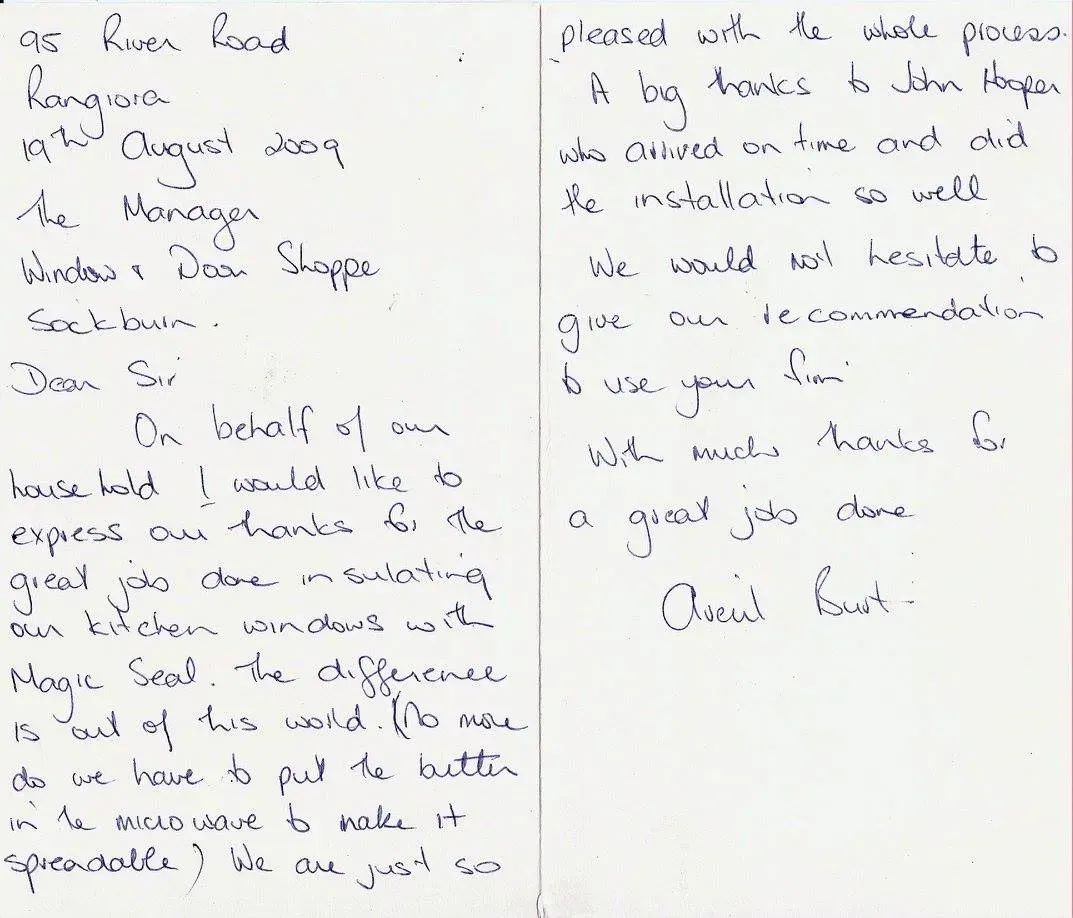 95 River Road
Rangiora
19th August 2009
The Manager
Window & Door Shoppe
Sockburn.
Dear Sir
On behalf of our
household I would like to
express our thanks for the
great job done insulating
our kitchen windows with
Magic Seal. The difference
is out of this world. (No more
do we have to put the butter
in the microwave to make it
spreadable) We are just so
pleased with the whole process.
A big thanks to John Hooper
who arrived on time and did
the installation so well
We would not hesitate to
give our recommendation
to use your firm
With much thanks for
a great job done
Averil Burt